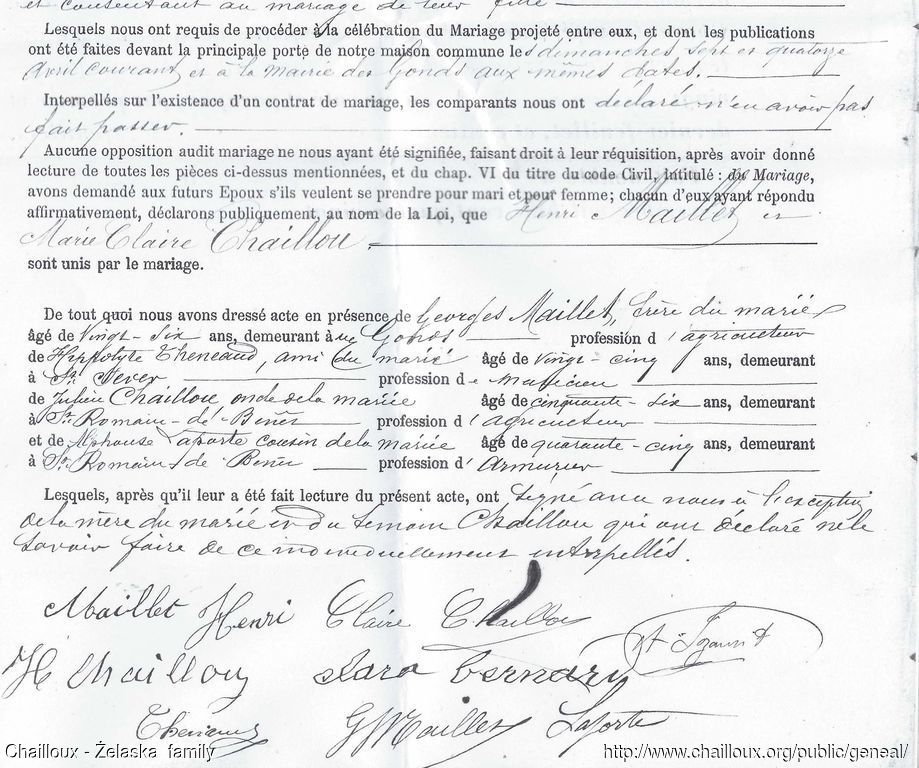 et consentant au mariage de leur fille
Lesquels nous ont requis de procéder à la célébration du Mariage projeté entre eux, et dont les publications
ont été faites devant la principale porte de notre maison commune les dimanches sept et quatorze
avril courant et à la mairie des Gonds aux mêmes dates.
Interpellés sur l'existence d'un contrat de mariage, les comparants nous ont déclaré n'en avoir pas
fait passer.
Aucune opposition audit mariage ne nous ayant été signifiée, faisant droit à leur réquisition, après avoir donné
lecture de toutes les pièces ci-dessus mentionnées, et du chap. VI du titre du code Civil, intitulé : du Mariage,
avons demandé aux futurs Epoux s'ils veulent se prendre pour mari et pour femme; chacun d'eux ayant répondu
affirmativement, déclarons publiquement, au nom de la Loi, que Henri Maillet et
Marie Claire Chaillou,
sont unis par le mariage.
De tout quoi nous avons dressé acte en présence de Georges Maillet, frère du marié
âgé de vingt-six ans, demeurant aux Gonds profession d'agriculteur
de Hippolyte Theneaud, ami du marié âgé de vingt-cinq ans, demeurant
à St Sever profession de musicien
de Julien Chaillou oncle de la mariée âgé de cinquante-six ans, demeurant
à St Romain-de-Benet profession d'agriculteur
et de Alphonse Laporte cousin de la mariée âgé de quarante-cinq ans, demeurant
à St Romain-de-Benet profession d'armurier
Lesquels, après qu'il leur a été fait lecture du présent acte, ont signé avec nous à l'exception
de la mère du marié et du temoin Chaillou qui ont déclaré ne le
savoir faire de ce individuellement interpellés.
Maillet Henri Claire Chaillou
H Chaillou Sara Bernard
Theneaud G Maillet Laporte
Chailloux - Żelaska family http://www.chailloux.org/public/geneal/